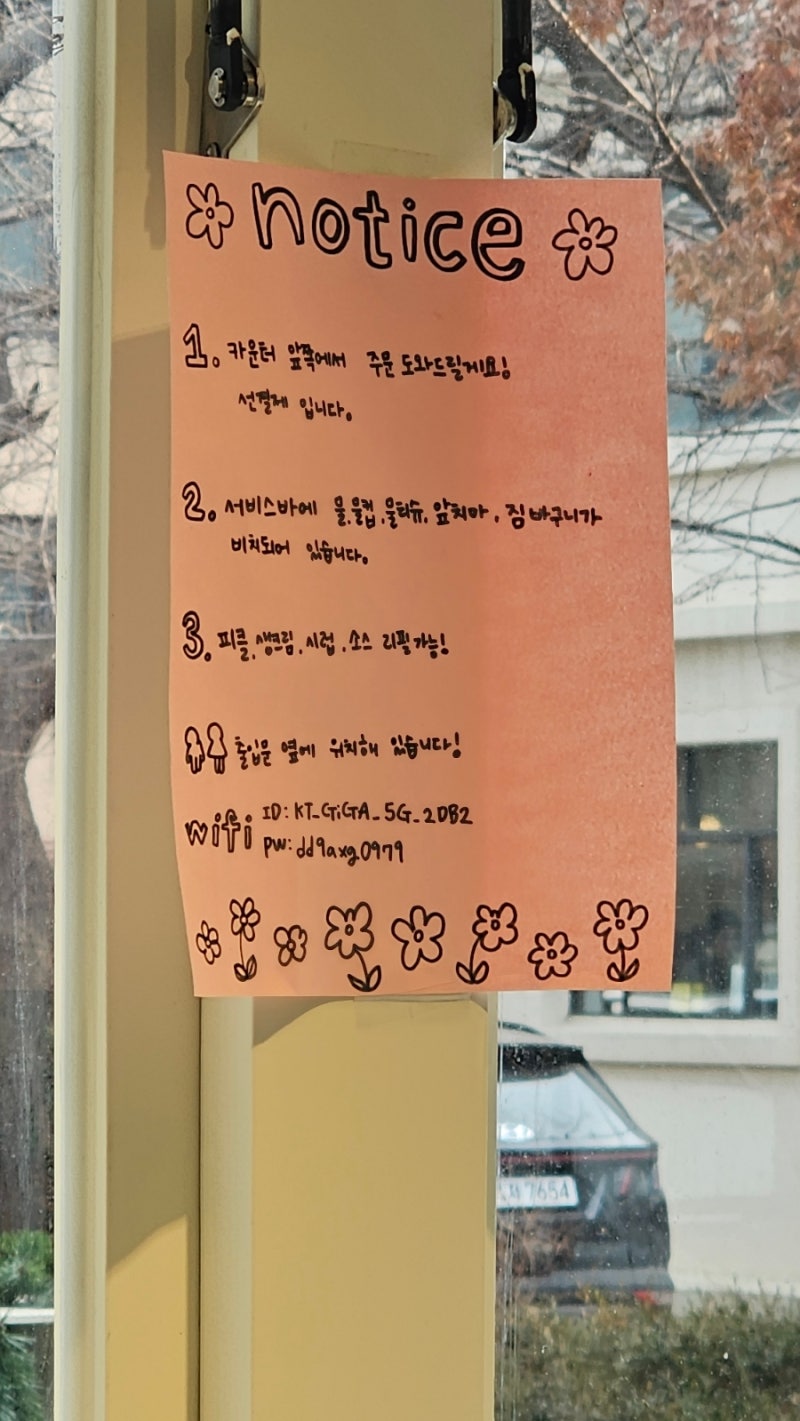 notice
1. 카운터 앞쪽에서 주문 도와드릴게요!
선결제 입니다.
2. 서비스바에 물, 물컵, 물티슈, 앞치마, 짐 바구니가
비치되어 있습니다.
3. 피클, 생크림, 시럽, 소스 리필가능!
출입문 옆에 위치해 있습니다!
wifi ID: KT_GiGA_5G_2DB2
pw: dd9axg0979
7654